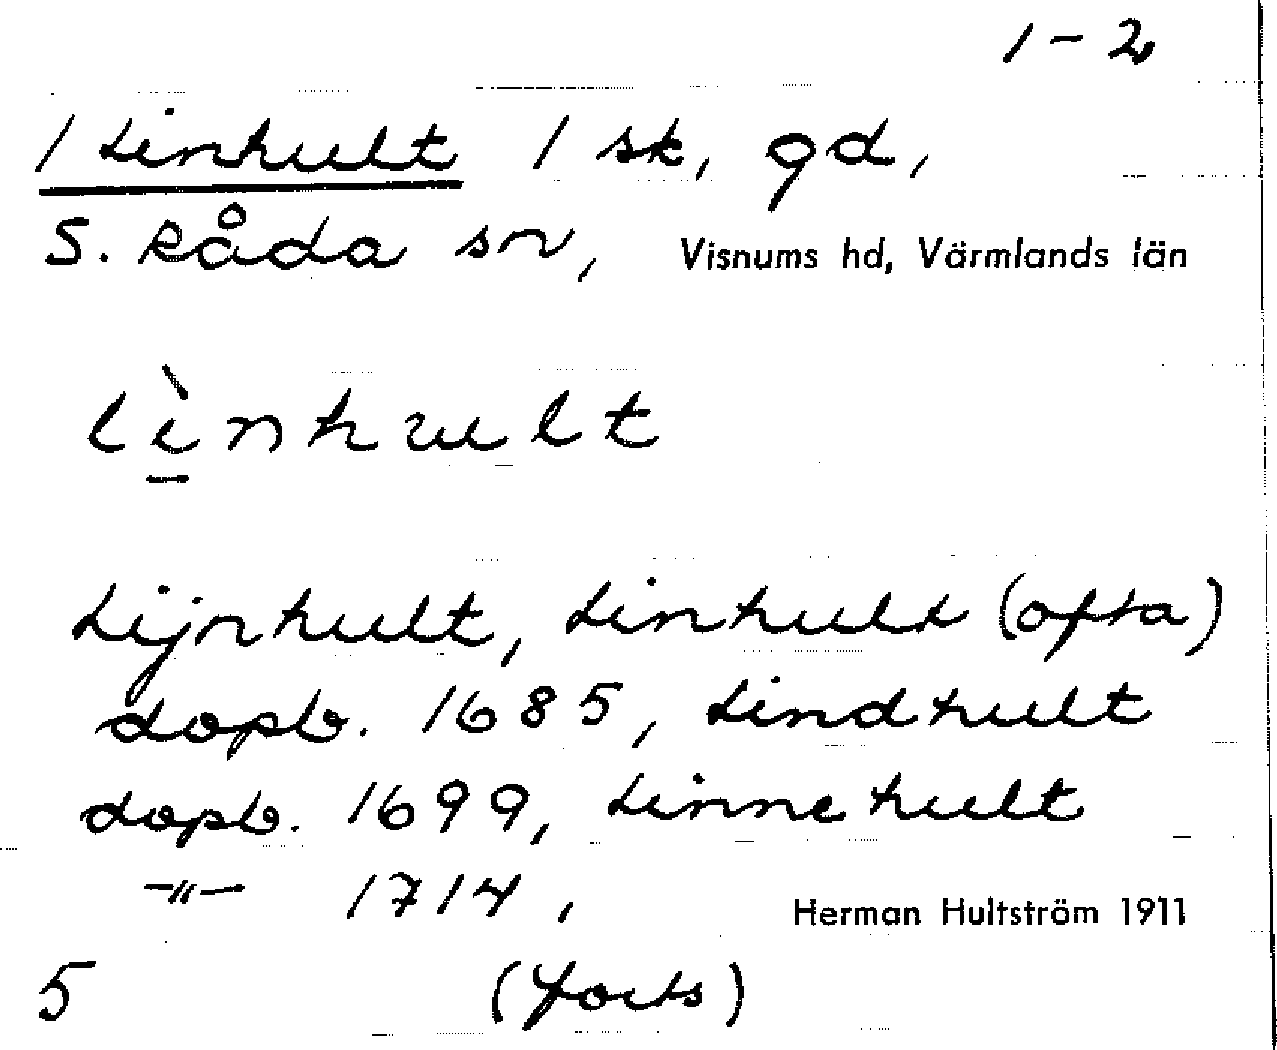 1-2
1 Linhult 1 sk, gd,
S. Råda sn, Visnums hd, Värmlands län
lìnhult
Lijnhult, Linhult (ofta)
dopb. 1685, Lindhult
dopb. 1699, Linnehult
-"- 1714, Herman Hultström 1911
5 (forts)